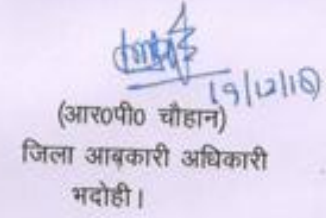 19/12/18
(आर0पी0 चौहान)
जिला आबकारी अधिकारी
भदोही।